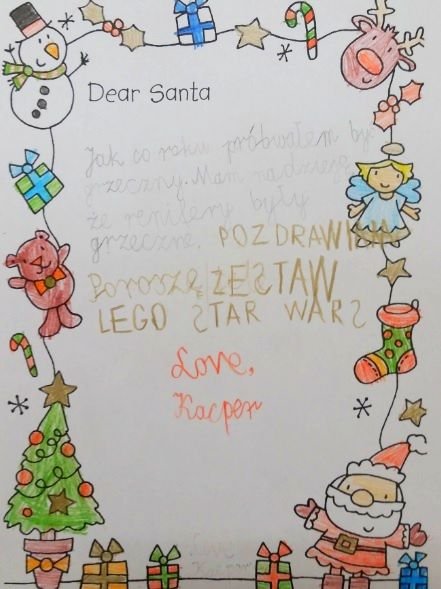 Dear Santa
Jak co roku próbwałem by
grzeczny. Mam nadzieję
że renifery były
grzeczne. POZDRAWIAM
Poroszę ZESTAW
LEGO STAR WARS
Love,
Kacper
Love
Kacper